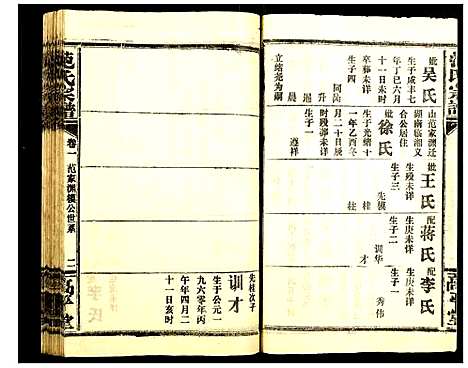 范氏宗譜
山范家渊迁
湖南临湘义
合公居住
妣王氏
生殁未详
生子三
先模
桂
柱
配蒋氏
生庚未详
生子二
训华
才
配李氏
生庚未详
生子一
秀伟
妣吴氏
生于咸丰七
年丁巳六月
十一日未时
卒葬未详
生子四
同治
升
遥
晨
立绪尧为嗣
妣徐氏
生于光绪十
一年乙酉冬
月二十日辰
时殁葬未详
生子二
遵祥
高平堂
范氏宗譜
卷一
范家渊模公世系
二
高平堂
先桂次子
训才
生于公元一
九六零年丙
午年四月二
十一日亥时